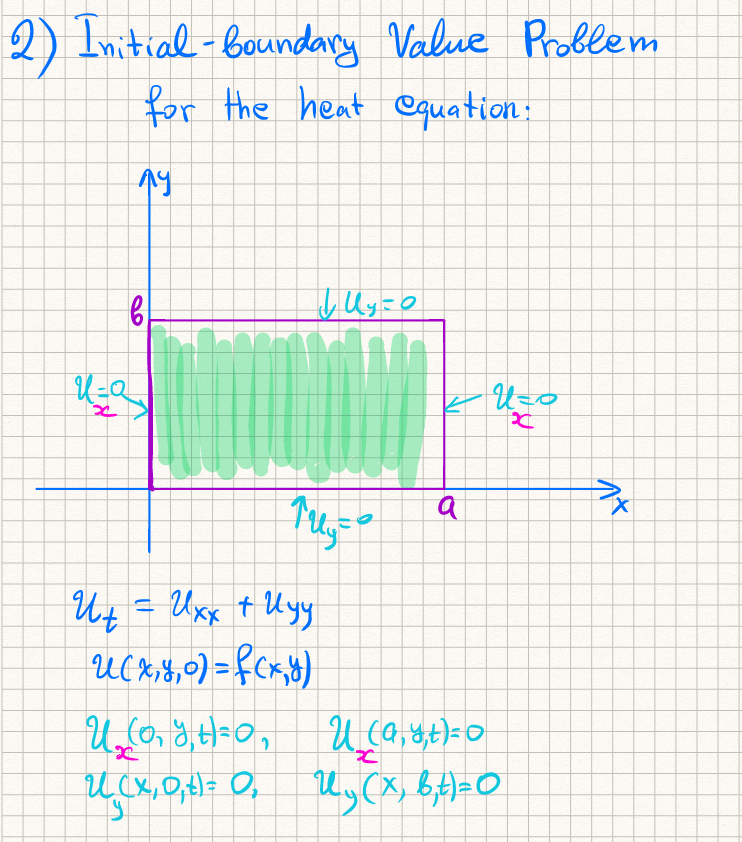 2) Initial-boundary Value Problem
for the heat equation:
y
b
↓ u_y=0
u_x=0
u_x=0
↑u_y=0
a
x
u_t = u_xx + u_yy
u(x,y,0)=f(x,y)
u_x(0,y,t)=0, u_x(a,y,t)=0
u_y(x,0,t)=0, u_y(x,b,t)=0